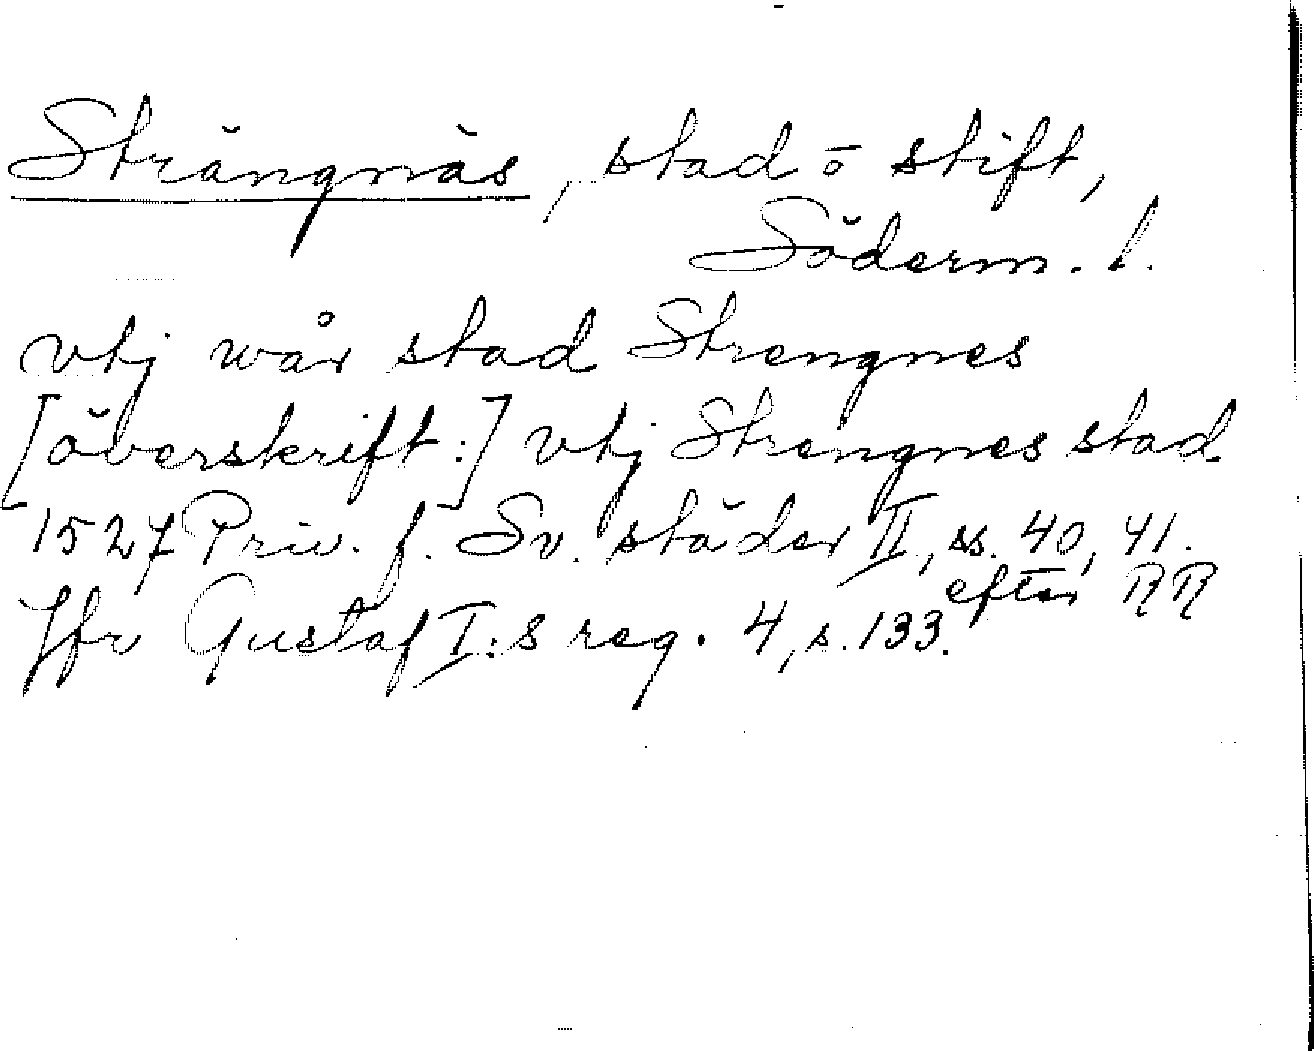 Strängnäs, stad o stift,
Söderm. l.
vtj wår stad Strengnes
[överskrift:] vtj Strengnes stad.
1527 Priv. f. Sv. städer II, ss. 40, 41.
efter RR
Jfr Gustaf I:s reg. 4, s. 133.